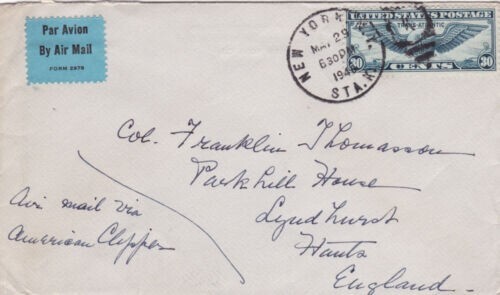 Par Avion
By Air Mail
FORM 2978
NEW YORK, N.Y.
MAY 29
6 30 PM
194
STA. K
UNITED STATES POSTAGE
TRANS-ATLANTIC
30 CENTS 30
Col. Franklin Thomasson
Park hill House
Lyndhurst
Hants
England.
Air mail via
American Clipper